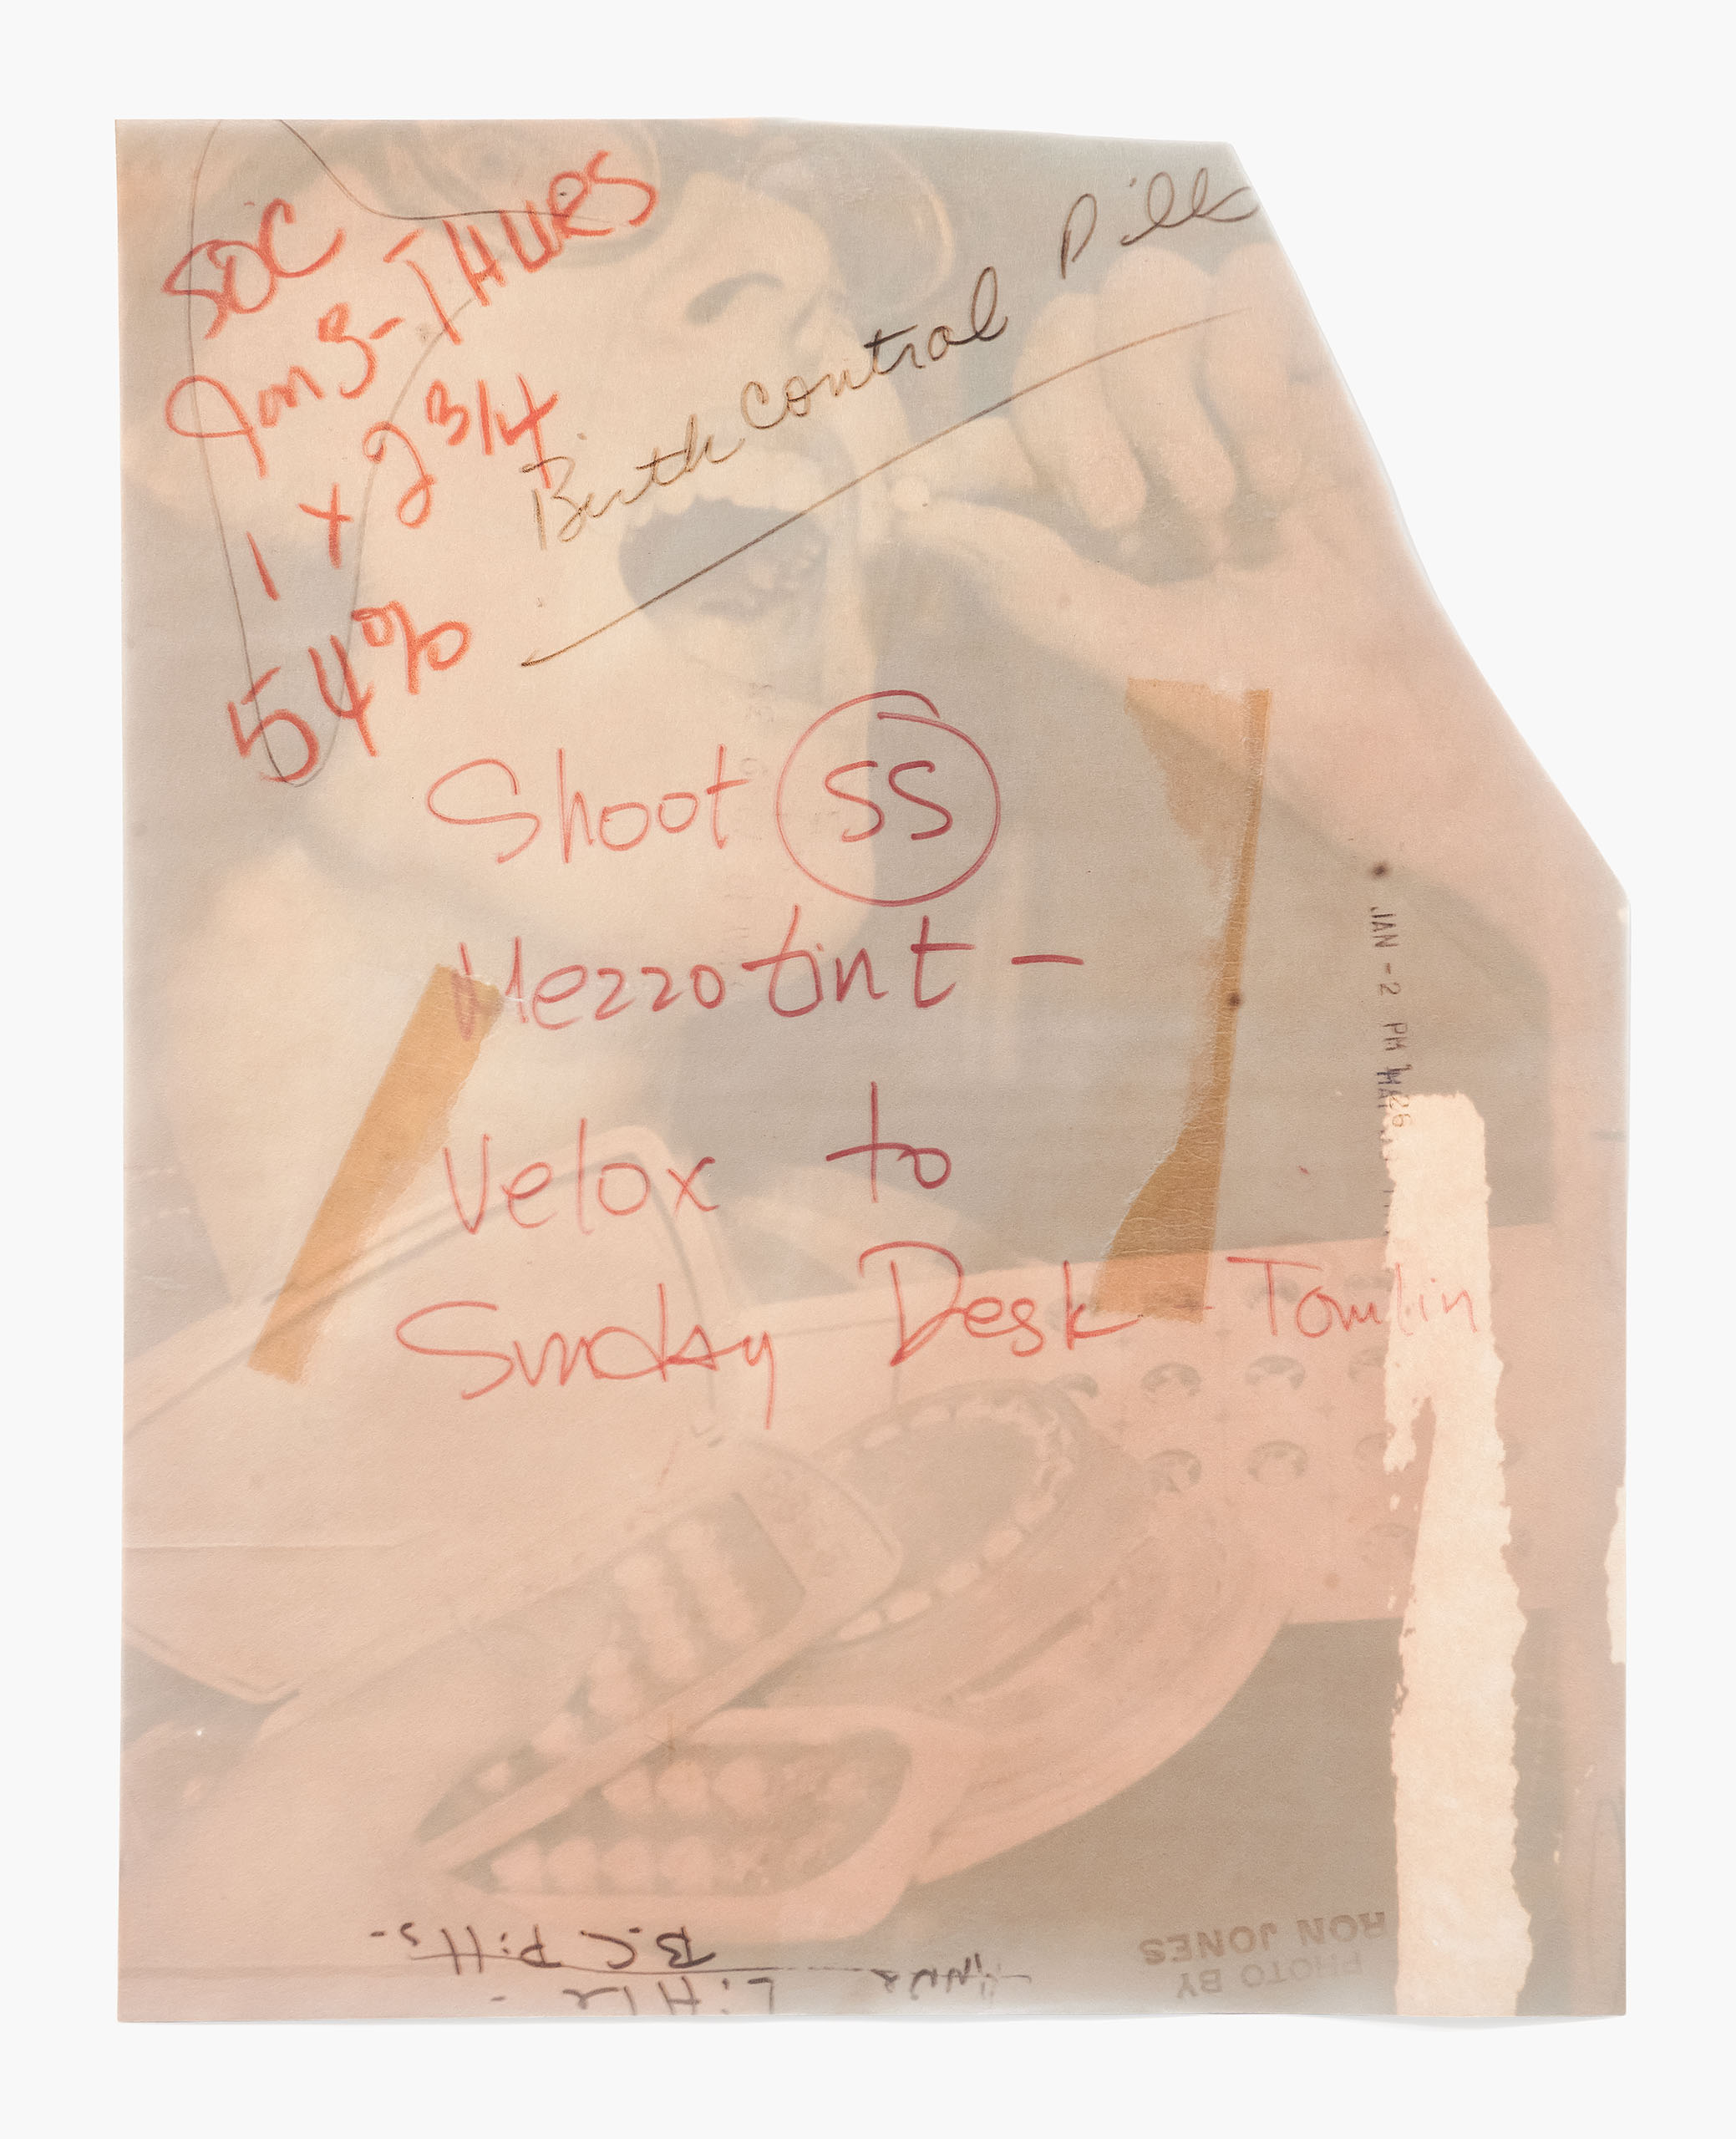 SOC
Jan 3 - THURS
1 x 2 3/4
54%
Birth Control Pills
Shoot SS
Mezzotint -
Velox to
Sunday Desk - Tomlin
JAN - 2 PM
B.C Pills -
Little -
PHOTO BY
RON JONES